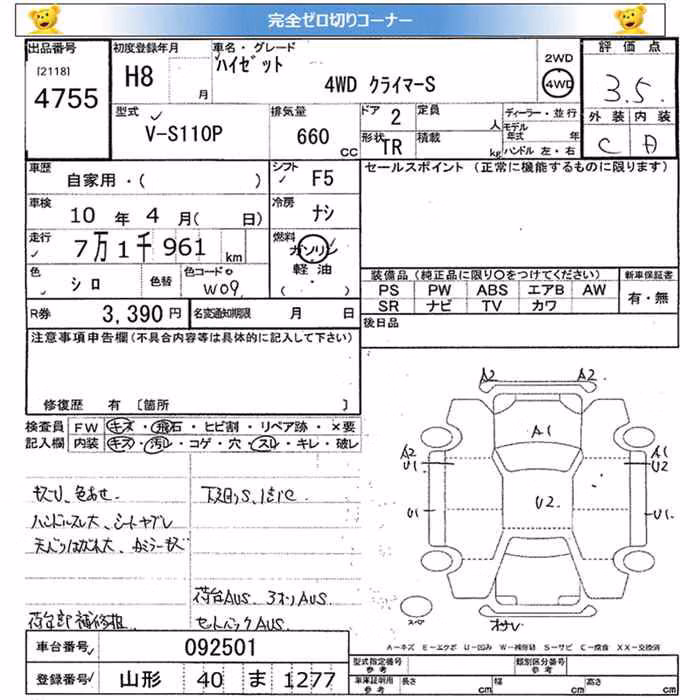 完全ゼロ切りコーナー
出品番号
[2118]
4755
初度登録年月
H8
月
車名・グレード
ハイゼット
4WD クライマーS
2WD
4WD
評価点
3.5
外装 内装
C A
型式
V-S110P
排気量
660
CC
ドア
2
形状
TR
定員
人
積載
kg
ディーラー・並行
モデル年式 年
ハンドル 左・右
車歴
自家用・( )
シフト
F5
セールスポイント (正常に機能するものに限ります)
車検
10 年 4 月( 日)
冷房
ナシ
走行
7万1千961 km
燃料
ガソリン
軽油
( )
色
シロ
色替
色コードo
W09
装備品(純正品に限り〇をつけてください)
PS PW ABS エアB AW
SR ナビ TV カワ
新車保証書
有・無
R券
3,390 円
名変通知期限 月 日
後日品
注意事項申告欄(不具合内容等は具体的に記入して下さい)
修復歴 有 〔箇所 〕
検査員記入欄
FW キズ・飛石・ヒビ割・リペア跡・×要
内装 キズ・汚レ・コゲ・穴・スレ・キレ・破レ
キズU、色あせ
ハンドルスレ大、シートヤブレ
下廻りS、
荷台AUS、
A2 A2
A1
A2
U1
A1
U2
U2
U1 U1
スペア
A-キズ E-エクボ U-凹み W-補修跡 S-サビ C-腐食 XX-交換済
車台番号
092501
登録番号
山形 40 ま 1277
型式指定番号
参考
類別区分番号
参考
車庫証明用
参考
長さ cm 幅 cm 高さ cm